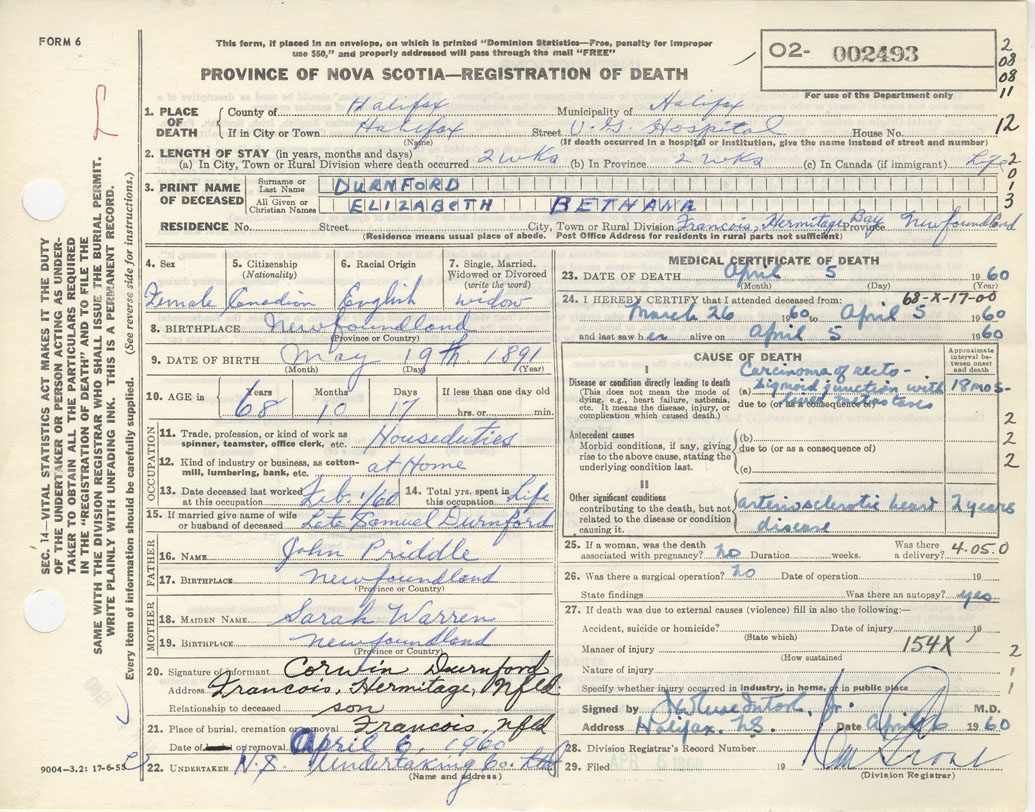 FORM 6
This form, if placed in an envelope, on which is printed "Dominion Statistics—Free, penalty for improper
use $50," and properly addressed will pass through the mail "FREE"
PROVINCE OF NOVA SCOTIA—REGISTRATION OF DEATH
O2- 002493
For use of the Department only
2
08
08
11
12
2
0
1
3
1. PLACE OF DEATH
County of Halifax Municipality of Halifax
If in City or Town Halifax Street V.G. Hospital House No.
(Name) (If death occurred in a hospital or institution, give the name instead of street and number)
2. LENGTH OF STAY (in years, months and days)
(a) In City, Town or Rural Division where death occurred 2 wks (b) In Province 2 wks (c) In Canada (if immigrant) Life
3. PRINT NAME OF DECEASED
Surname or Last Name DURNFORD
All Given or Christian Names ELIZABETH BETHANA
RESIDENCE No. Street City, Town or Rural Division Francois, Hermitage Bay Province Newfoundland
(Residence means usual place of abode. Post Office Address for residents in rural parts not sufficient)
4. Sex 5. Citizenship (Nationality) 6. Racial Origin 7. Single, Married, Widowed or Divorced (write the word)
Female Canadian English widow
8. BIRTHPLACE Newfoundland
(Province or Country)
9. DATE OF BIRTH May 19th 1891
(Month) (Day) (Year)
10. AGE in Years Months Days If less than one day old
68 10 17 hrs. or min.
OCCUPATION
11. Trade, profession, or kind of work as spinner, teamster, office clerk, etc. Houseduties
12. Kind of industry or business, as cotton-mill, lumbering, bank, etc. at Home
13. Date deceased last worked at this occupation Feb. 1/60 14. Total yrs. spent in this occupation Life
15. If married give name of wife or husband of deceased Late Samuel Durnford
FATHER
16. NAME John Priddle
17. BIRTHPLACE Newfoundland
(Province or Country)
MOTHER
18. MAIDEN NAME Sarah Warren
19. BIRTHPLACE Newfoundland
(Province or Country)
20. Signature of informant Corwin Durnford
Address Francois, Hermitage, Nfld.
Relationship to deceased son
21. Place of burial, cremation or removal Francois, Nfld
Date of burial or removal April 6, 1960
22. UNDERTAKER N.S. Undertaking Co. Ltd
(Name and address)
9004—3.2: 17-6-55
MEDICAL CERTIFICATE OF DEATH
23. DATE OF DEATH April 5 1960
(Month) (Day) (Year)
68-X-17-00
24. I HEREBY CERTIFY that I attended deceased from:
March 26 1960 to April 5 1960
and last saw her alive on April 5 1960
CAUSE OF DEATH
Approximate interval between onset and death
I
Disease or condition directly leading to death
(This does not mean the mode of dying, e.g., heart failure, asthenia, etc. It means the disease, injury, or complication which caused death.)
(a) Carcinoma of recto-
sigmoid junction with 18 mos-
liver metastases
due to (or as a consequence of)
Antecedent causes
Morbid conditions, if any, giving rise to the above cause, stating the underlying condition last.
(b)
due to (or as a consequence of)
(c)
2
2
2
II
Other significant conditions
contributing to the death, but not related to the disease or condition causing it.
arteriosclerotic heart 2 years
disease
25. If a woman, was the death associated with pregnancy? no Duration weeks. Was there a delivery? 4.05.0
26. Was there a surgical operation? no Date of operation 19
State findings Was there an autopsy? yes
27. If death was due to external causes (violence) fill in also the following:—
Accident, suicide or homicide? Date of injury 19
(State which)
Manner of injury 154X 2
(How sustained
Nature of injury 1
Specify whether injury occurred in industry, in home, or in public place 1
Signed by M.D.
Address Halifax, N.S. Date April 6 1960
28. Division Registrar's Record Number
29. Filed APR 6 1960 19
(Division Registrar)
SEC. 14—VITAL STATISTICS ACT MAKES IT THE DUTY
OF THE UNDERTAKER OR PERSON ACTING AS UNDER-
TAKER TO OBTAIN ALL THE PARTICULARS REQUIRED
IN THE "REGISTRATION OF DEATH" AND TO FILE THE
SAME WITH THE DIVISION REGISTRAR WHO SHALL ISSUE THE BURIAL PERMIT.
WRITE PLAINLY WITH UNFADING INK. THIS IS A PERMANENT RECORD.
Every item of information should be carefully supplied. (See reverse side for instructions.)